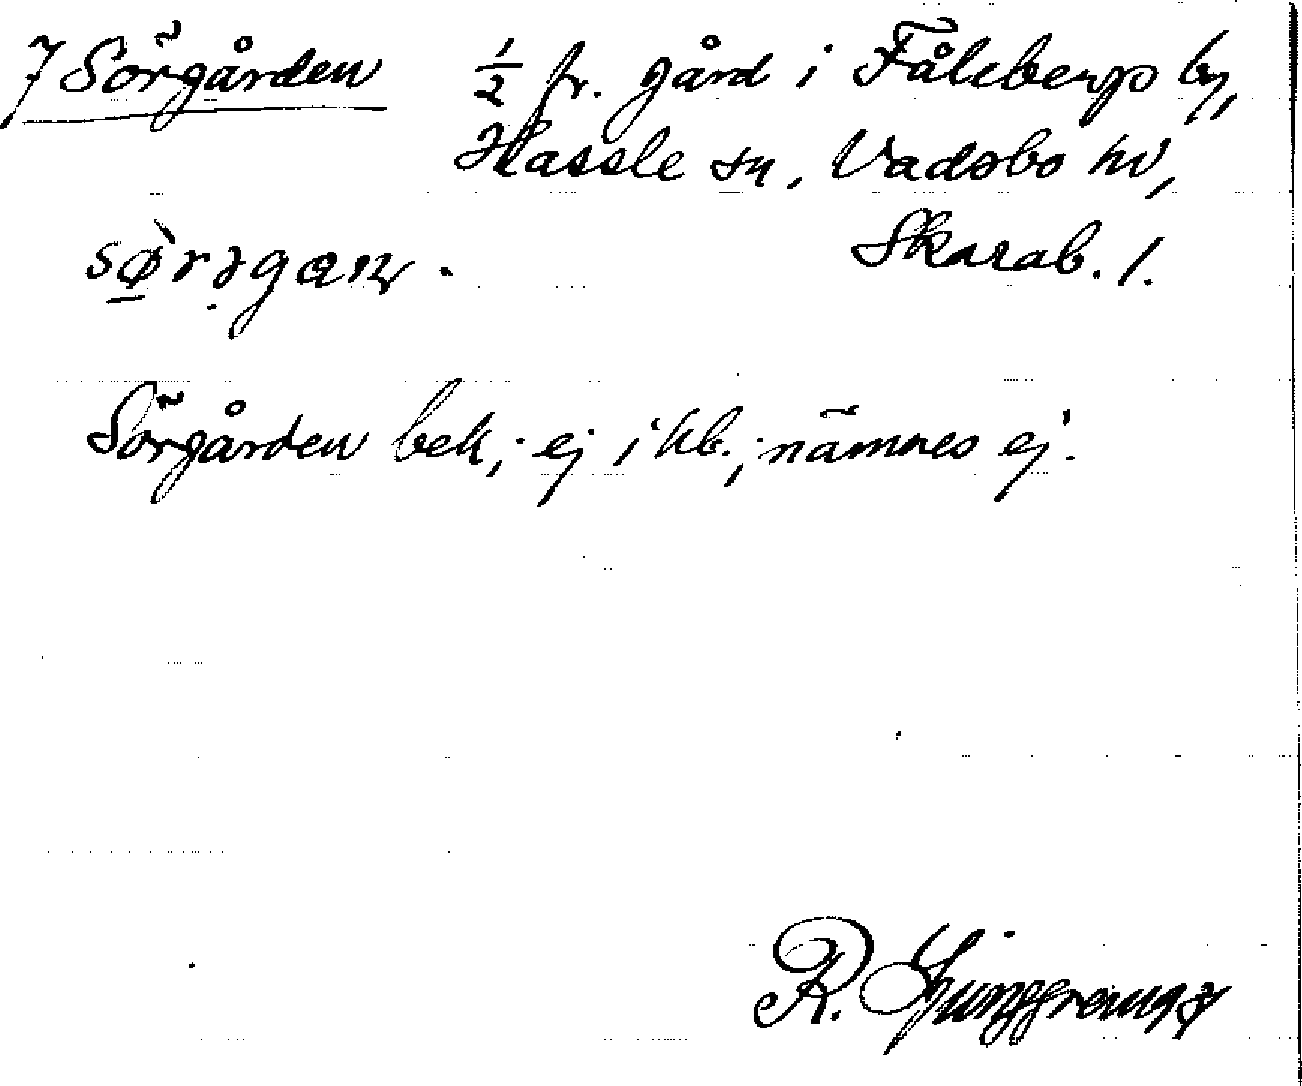 7 Sörgården ½ fr. gård i Fåleberg by,
Hassle sn, Vadsbo hd,
Skarab. l.
Sörgården bek; ej i kb.; nämnes ej.
R. Ljunggren